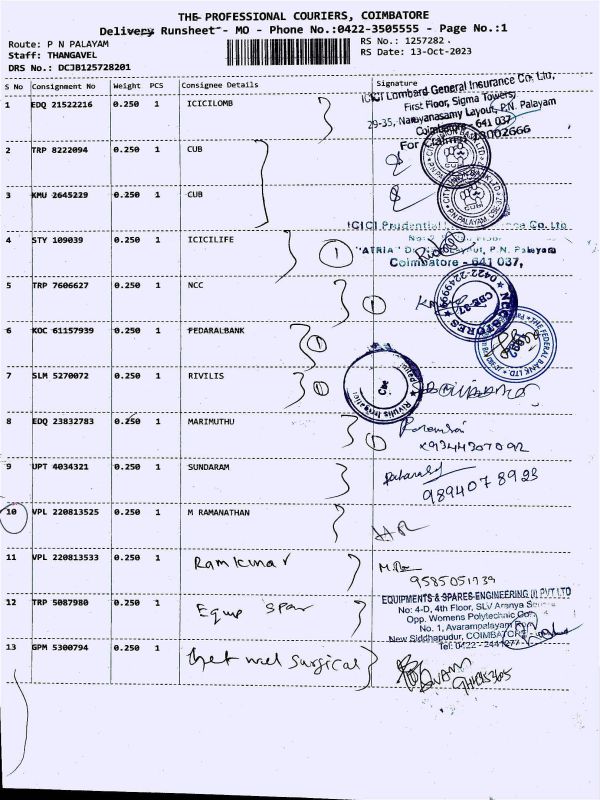 THE PROFESSIONAL COURIERS, COIMBATORE
Delivery Runsheet - MO - Phone No.:0422-3505555 - Page No.:1
Route: P N PALAYAM
RS No.: 1257282
Staff: THANGAVEL
RS Date: 13-Oct-2023
DRS No: DCJB125728201
S No Consignment No Weight PCS Consignee Details Signature
1 EDQ 21522216 0.250 1 ICICILOMB
ICICI Lombard General Insurance Co. Ltd,
First Floor, Sigma Towers,
29-35, Narayanasamy Layout, P.N. Palayam
Coimbatore - 641 037
2 TRP 8222094 0.250 1 CUB
3 KMU 2645229 0.250 1 CUB
P.N PALAYAM, CBE-37
ICICI Prudential Co. Ltd
4 STY 109039 0.250 1 ICICILIFE 1
"ATRIA" P.N. Palayam
Coimbatore - 641 037,
5 TRP 7606627 0.250 1 NCC 1
NCC STORES 0422-2249999
CBE-37
6 KOC 61157939 0.250 1 PEDARALBANK 1
THE FEDERAL BANK LTD
7 SLM 5270072 0.250 1 RIVILIS 1
Rivulis Irrigation
Cbe
8 EDQ 23832783 0.250 1 MARIMUTHU 1
9344307092
9 UPT 4034321 0.250 1 SUNDARAM
9894078923
10 VPL 220813525 0.250 1 M RAMANATHAN
11 VPL 220813533 0.250 1 Ramkumar
9585051939
12 TRP 5087980 0.250 1 Equp Spar
EQUIPMENTS & SPARES ENGINEERING (I) PVT LTD
No: 4-D, 4th Floor, SLV Aranya
Opp. Womens Polytechnic
No. 1, Avarampalayam
New Siddhapudur, COIMBATORE
Tel: 0422 - 2441277
13 GPM 5300794 0.250 1 Surgical